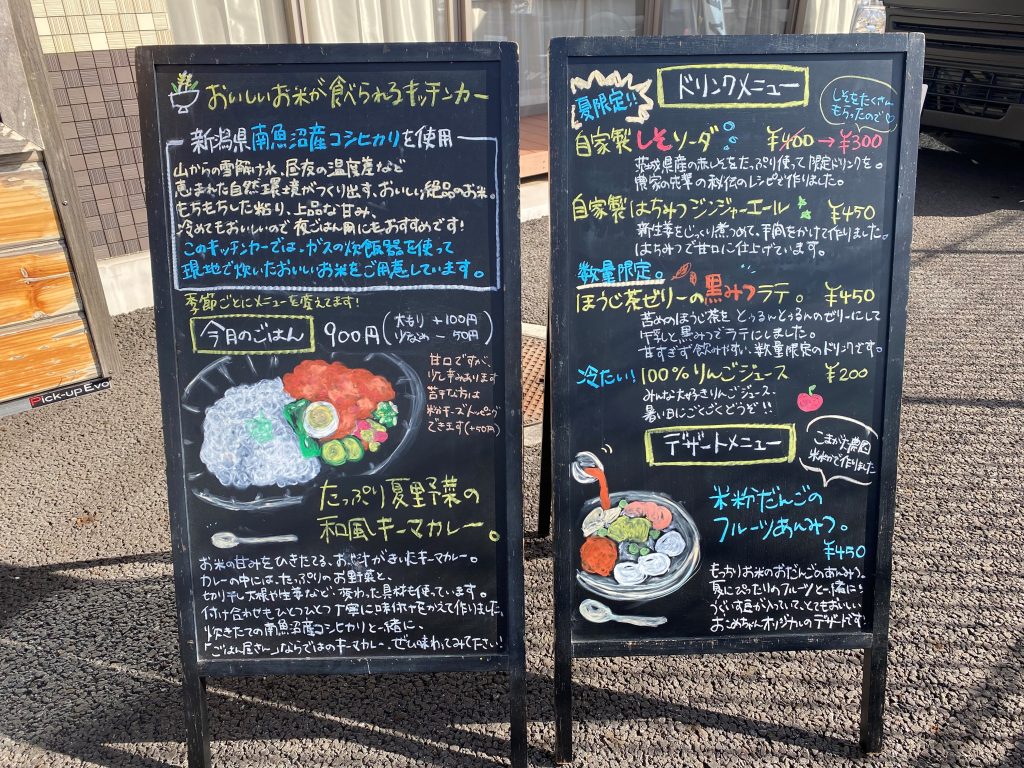 おいしいお米が食べられるキッチンカー
新潟県南魚沼産コシヒカリを使用
山からの雪解け水、昼夜の温度差など
恵まれた自然環境がつくり出す、おいしい絶品のお米。
もちもちした粘り、上品な甘み、
冷めてもおいしいので夜ごはん用にもおすすめです!
このキッチンカーでは、ガスの炊飯器を使って
現地で炊いたおいしいお米をご用意しています。
季節ごとにメニューを変えてます!
今月のごはん 900円
大もり +100円
少なめ - 50円
甘口ですが、
少しきみあります
苦手な方は
粉チーズトッピング
できます(+50円)
たっぷり夏野菜の
和風キーマカレー。
お米の甘みをひきたてる、お出汁がきいたキーマカレー。
カレーの中には、たっぷりのお野菜と、
切り干し大根や生姜など、変わった具材も使っています。
付け合わせもひとつひとつ丁寧に味付けをかえて作りました。
炊きたての南魚沼産コシヒカリと一緒に、
「ごはん屋さん」ならではのキーマカレー、ぜひ味わってみてださい!
Pick-up Evo
ドリンクメニュー
夏限定!!
しそをたくさん
もらったので♡
自家製しそソーダ ¥400→¥300
茨城県産の赤しそをたっぷり使って限定ドリンクを。
農家の先輩の秘伝のレシピで作りました。
自家製はちみつジンジャーエール ¥450
新生姜をじっくり煮つめて、手間をかけて作りました。
はちみつで甘口に仕上げています。
数量限定。
ほうじ茶ゼリーの黒みつラテ。 ¥450
苦めのほうじ茶をとぅるんとぅるんのゼリーにして
牛乳と黒みつでラテにしました。
甘すぎず飲みやすい、数量限定のドリンクです。
冷たい! 100%りんごジュース ¥200
みんな大好きりんごジュース、
暑い日にごくごくどうぞ!!
デザートメニュー
こまがた農園
米粉で作りました
米粉だんごの
フルーツあんみつ。
¥450
もっちりお米のおだんごのあんみつ。
夏にぴったりのフルーツと一緒に!
うぐいす豆が入っていて、とてもおいしい
おこめちゃんオリジナルのデザートです!